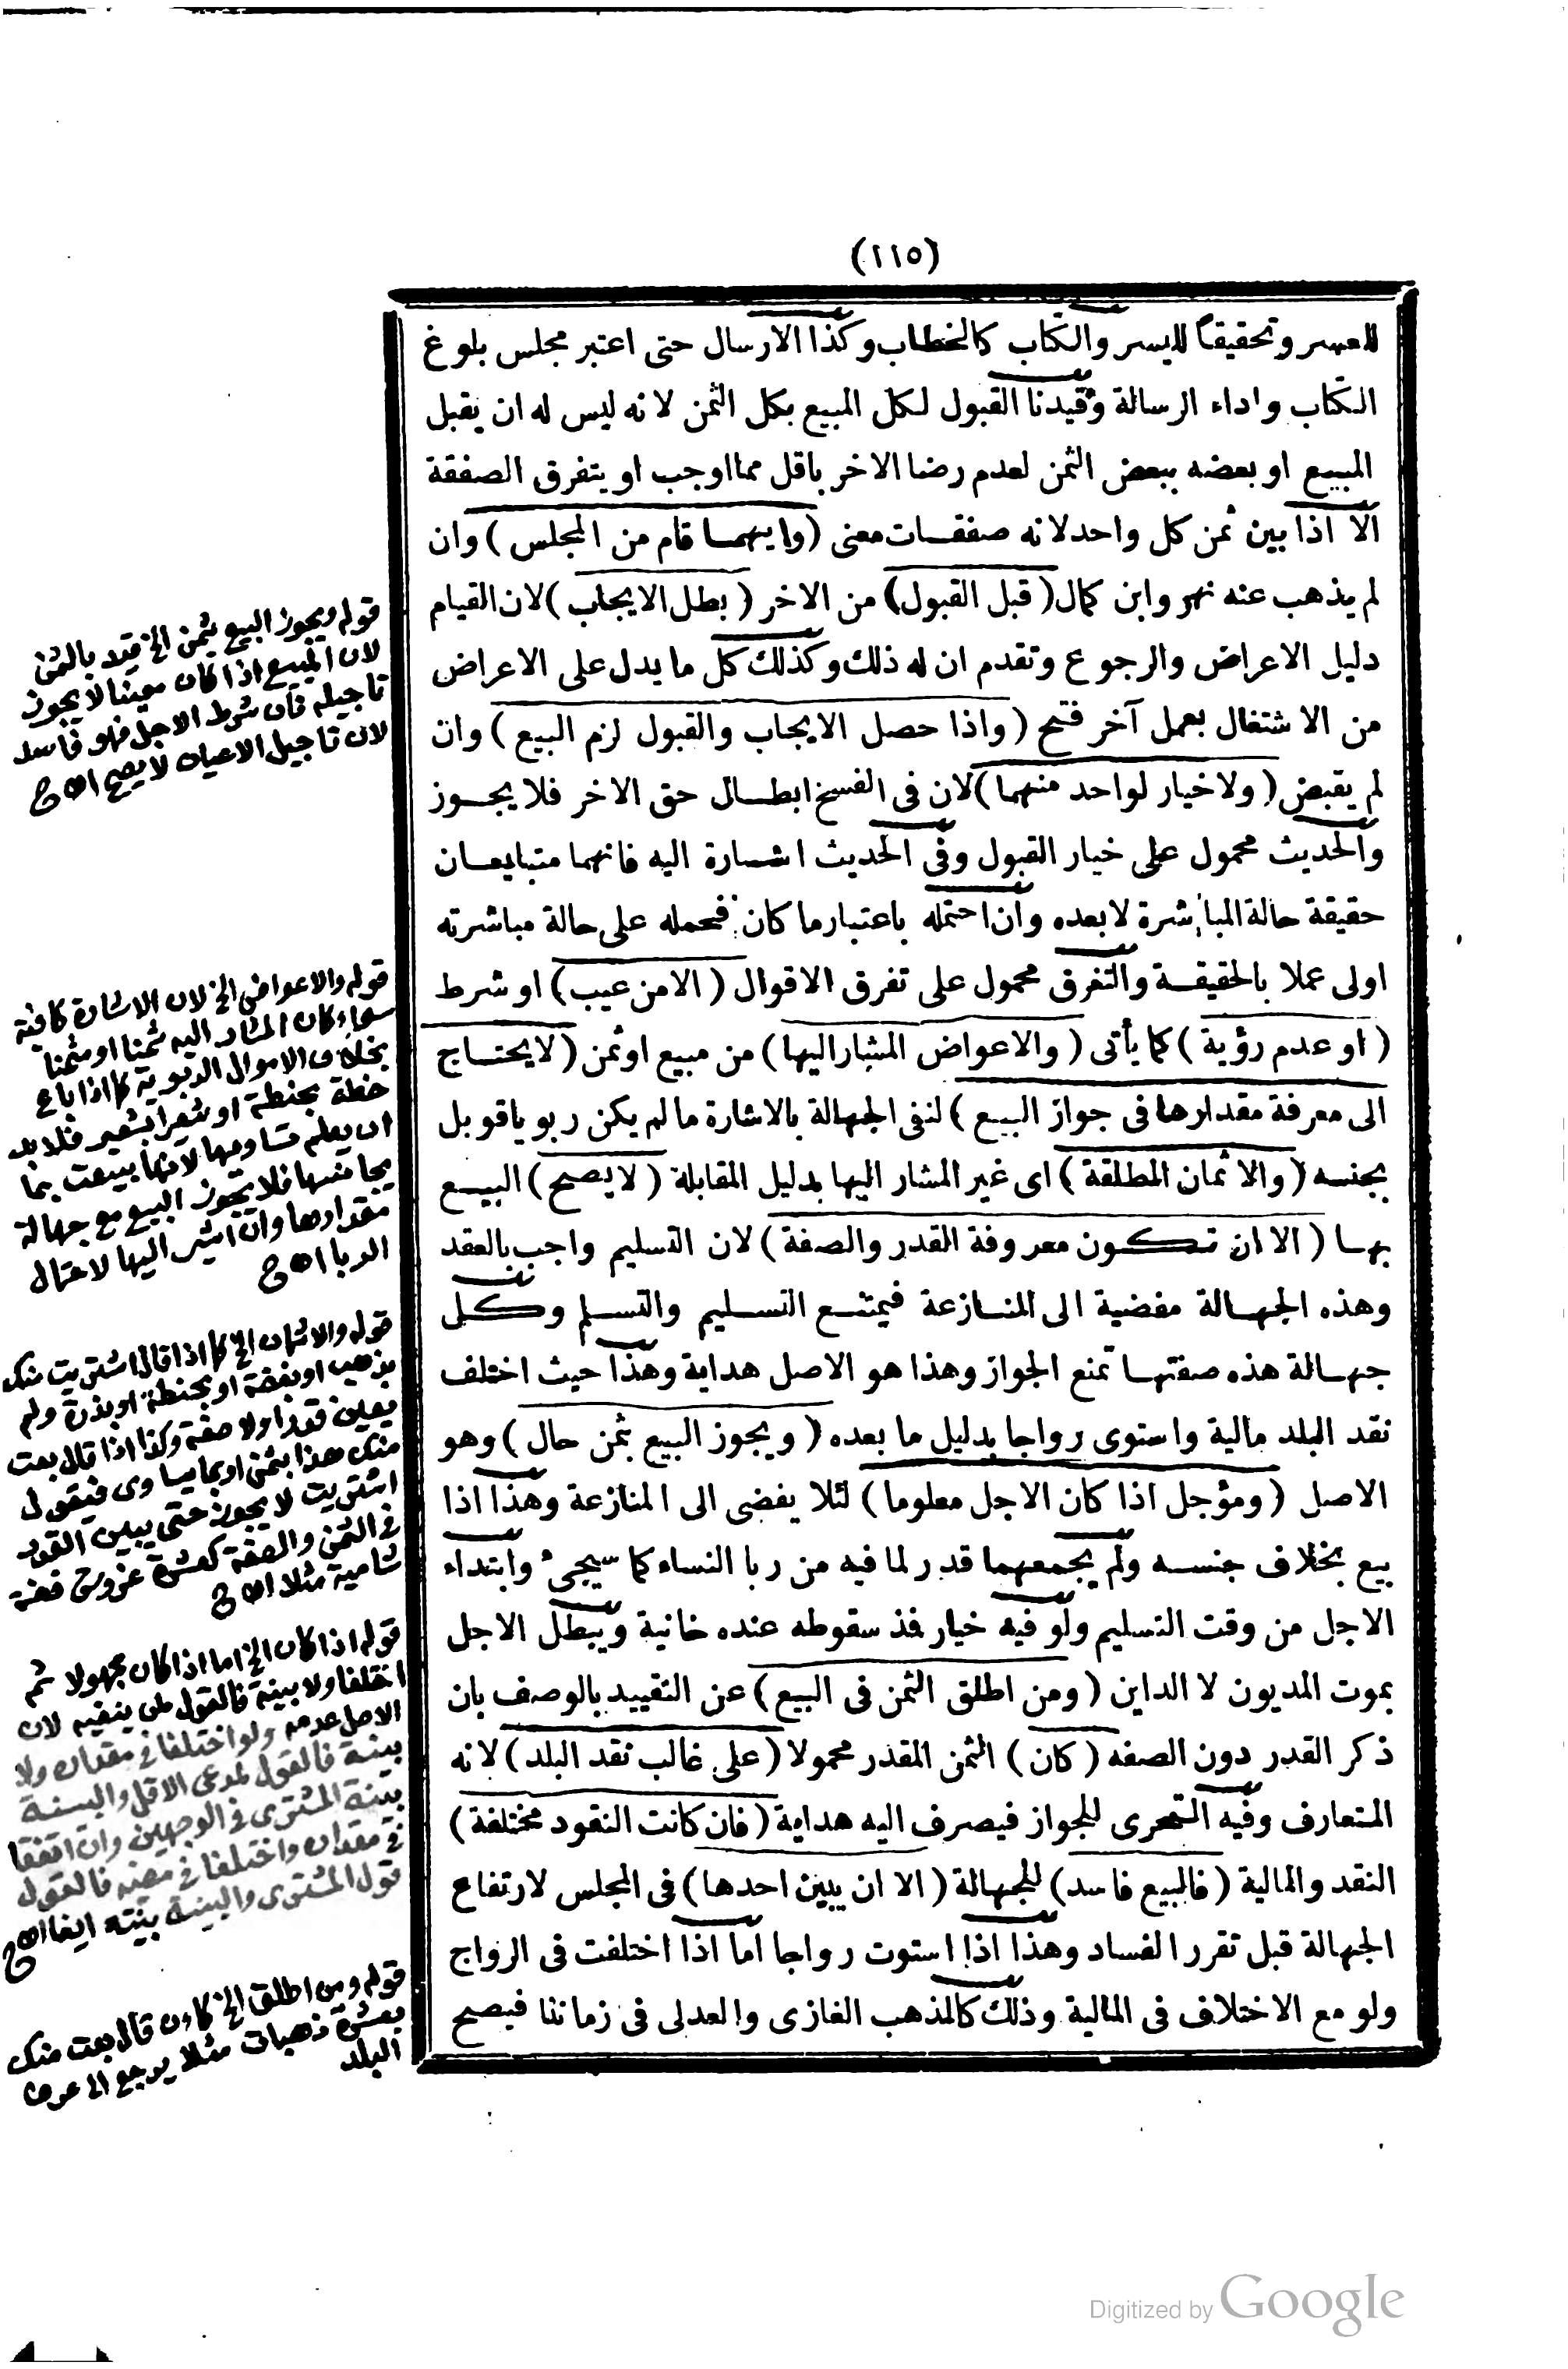 (١١٥)
للعسر وتحقيقاً لليسر والكتاب كالخطاب وكذا الارسال حتى اعتبر مجلس بلوغ
الكتاب واداء الرسالة وقيدنا القبول لكل المبيع بكل الثمن لانه ليس له ان يقبل
المبيع او بعضه ببعض الثمن لعدم رضا الاخر باقل مما اوجب او يتفرق الصفقة
الا اذا بين ثمن كل واحد لانه صفقات معنى (وايهما قام من المجلس) وان
لم يذهب عنه نهر وابن كمال (قبل القبول) من الاخر (بطل الايجاب) لان القيام
دليل الاعراض والرجوع وتقدم ان له ذلك وكذلك كل ما يدل على الاعراض
من الاشتغال بعمل آخر فتح (واذا حصل الايجاب والقبول لزم البيع) وان
لم يقبض (ولا خيار لواحد منهما) لان فى الفسخ ابطال حق الاخر فلا يجوز
والحديث محمول على خيار القبول وفى الحديث اشارة اليه فانهما متبايعان
حقيقة حالة المباشرة لا بعده وان احتمله باعتبار ما كان فحمله على حالة مباشرته
اولى عملا بالحقيقة والتفرق محمول على تفرق الاقوال (الا من عيب) او شرط
(او عدم رؤية) كما يأتى (والاعواض المشار اليها) من مبيع او ثمن (لا يحتاج
الى معرفة مقدارها فى جواز البيع) لنفى الجهالة بالاشارة ما لم يكن ربويا قوبل
بجنسه (والاثمان المطلقة) اى غير المشار اليها بدليل المقابلة (لا يصح) البيع
بها (الا ان تكون معروفة القدر والصفة) لان التسليم واجب بالعقد
وهذه الجهالة مفضية الى المنازعة فيمتنع التسليم والتسلم وكل
جهالة هذه صفتها تمنع الجواز وهذا هو الاصل هداية وهذا حيث اختلف
نقد البلد مالية واستوى رواجا بدليل ما بعده (ويجوز البيع بثمن حال) وهو
الاصل (ومؤجل اذا كان الاجل معلوما) لئلا يفضى الى المنازعة وهذا اذا
بيع بخلاف جنسه ولم يجمعهما قدر لما فيه من ربا النساء كما سيجئ وابتداء
الاجل من وقت التسليم ولو فيه خيار فذ سقوطه عنده خانية ويبطل الاجل
بموت المديون لا الداين (ومن اطلق الثمن فى البيع) عن التقييد بالوصف بان
ذكر القدر دون الصفه (كان) الثمن المقدر محمولا (على غالب نقد البلد) لانه
المتعارف وفيه التحرى للجواز فيصرف اليه هداية (فان كانت النقود مختلفة)
النقد والمالية (فالبيع فاسد) للجهالة (الا ان يبين احدها) فى المجلس لارتفاع
الجهالة قبل تقرر الفساد وهذا اذا استوت رواجا اما اذا اختلفت فى الرواج
ولو مع الاختلاف فى المالية وذلك كالذهب الغازى والعدلى فى زماننا فيصح
قوله ويجوز البيع بثمن الخ قيد بالثمن
لان المبيع اذا كان معينا لا يجوز
تاجيله فان شرط الاجل فهو فاسد
لان تاجيل الاعيان لا يصح اه ح
قوله والاعواض الخ لان الاشارة كافية
سواء كان المشار اليه ثمنا او مثمنا
بخلاف الاموال الربوية كما اذا باع
حنطة بحنطة او شعيرا بشعير فلا بد
ان يعلم تساويها لانها بيعت بما
يجانسها فلا يجوز البيع مع جهالة
مقدارها وان اشير اليها لاحتمال
الربا اه ح
قوله والاثمان الخ كما اذا قال اشتريت منك
بذهب او بفضة او بحنطة او بذرة ولم
يعين قدرا ولا صفة وكذا اذا قال بعت
منك هذا بثمن او بما يساوى فيقول
اشتريت لا يجوز حتى يبين القدر
فى الثمن والصفة كعشرة غروش فضة
شامية مثلا اه ح
قوله اذا كان الخ اما اذا كان مجهولا ثم
اختلفا ولا بينة فالقول لمن ينفيه لان
الاصل عدمه ولو اختلفا فى مقداره ولا
بينة فالقول لمدعى الاقل والبينة
بينة المشترى فى الوجهين وان اتفقا
فى مقداره واختلفا فى مضيه فالقول
قول المشترى والبينة بينته ايضا اه ح
قوله ومن اطلق الخ كان قال بعت منك
بعشرة ذهبات مثلا يرجع الى عرف
البلد
Digitized by Google